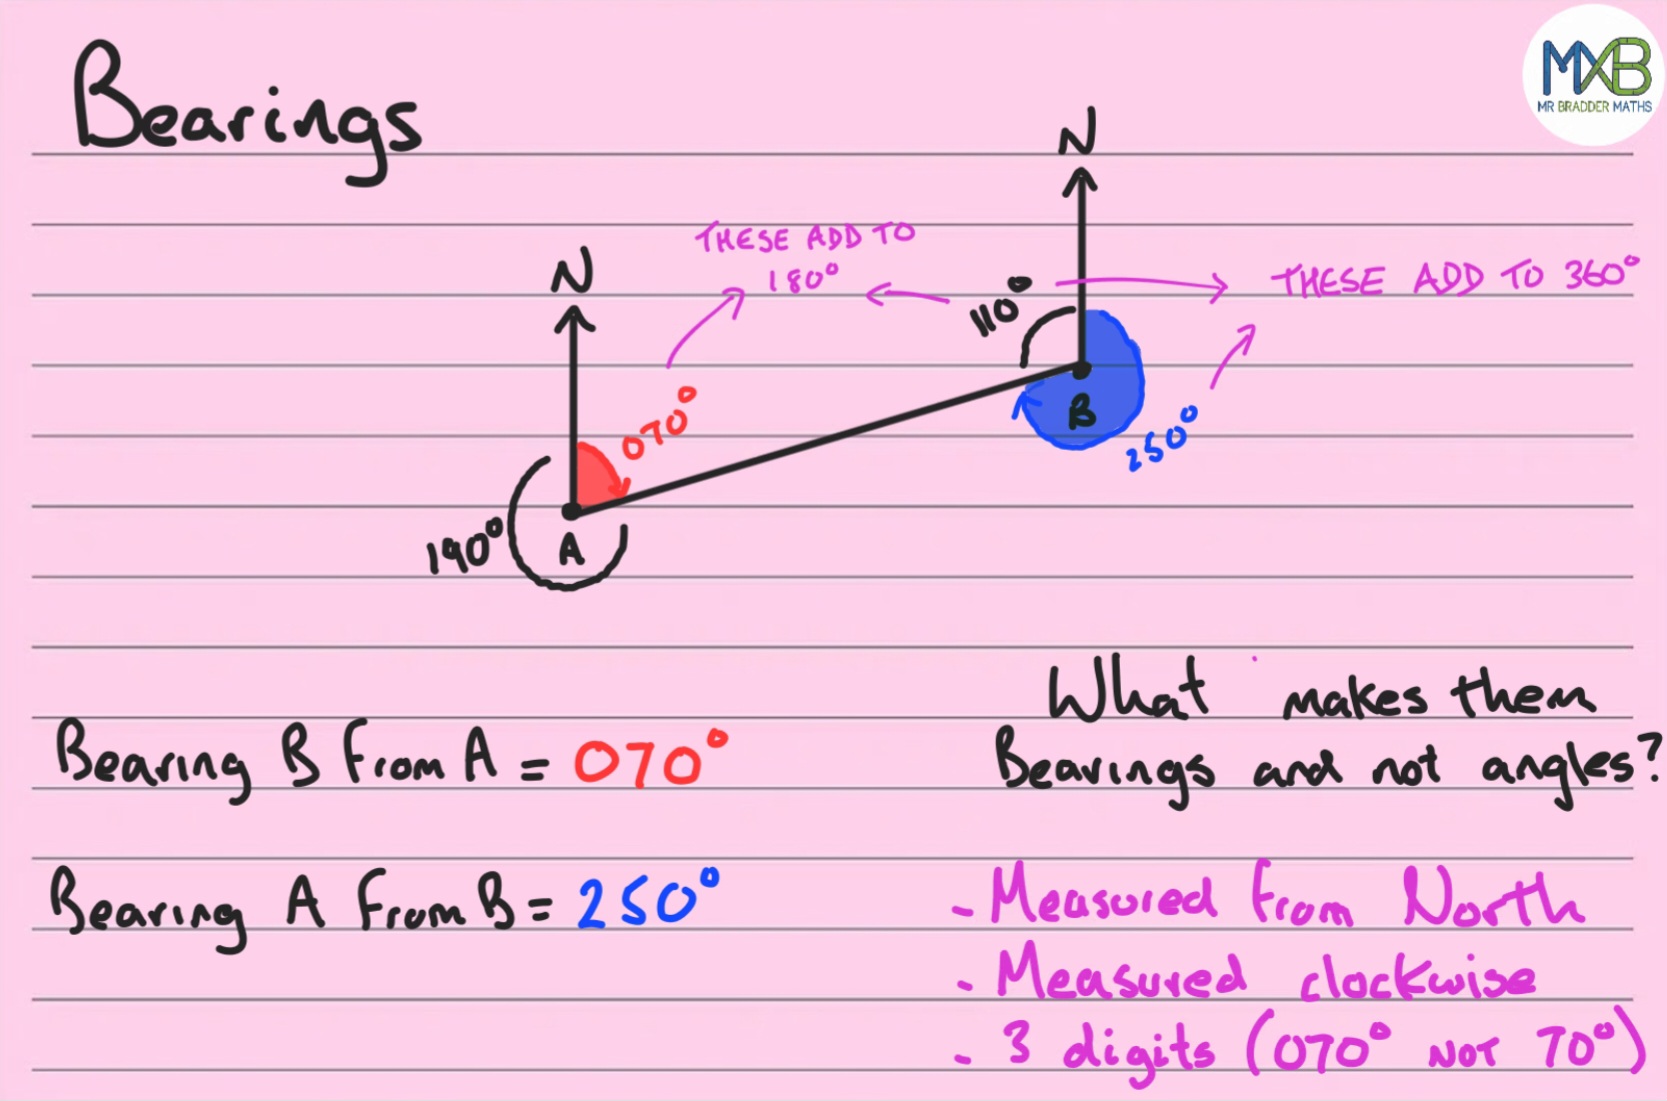 Bearings
MXB
MR BRADDER MATHS
N
N
THESE ADD TO
180°
THESE ADD TO 360°
110°
070°
B
250°
190°
A
Bearing B from A = 070°
Bearing A from B = 250°
What makes them
Bearings and not angles?
- Measured from North
- Measured clockwise
- 3 digits (070° NOT 70°)